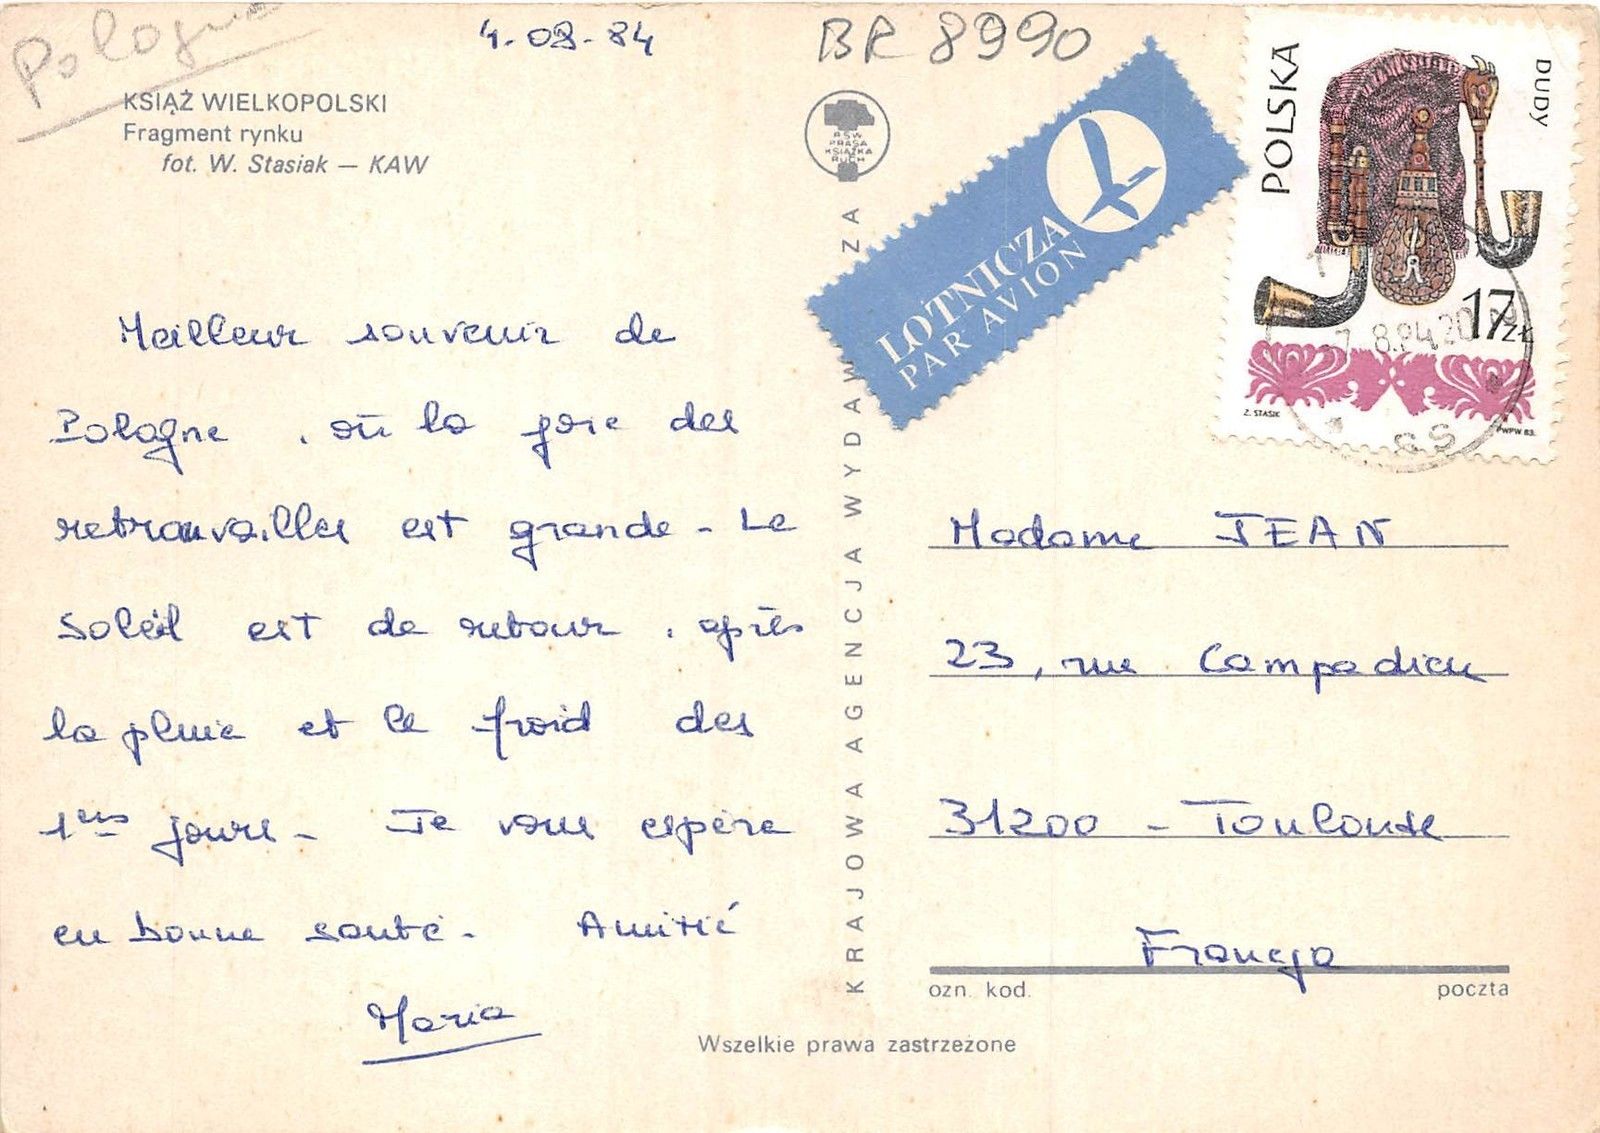 Pologne
4.08.84
BR 8990
KSIĄŻ WIELKOPOLSKI
Fragment rynku
fot. W. Stasiak — KAW
RSW
PRASA
KSIĄŻKA
RUCH
LOTNICZA
PAR AVION
POLSKA
DUDY
17 ZŁ
7. 8.84 20
Z. STASIK
PWPW 83.
Meilleur souvenir de
Pologne, où la joie des
retrouvailles est grande - Le
Soleil est de retour, après
la pluie et le froid des
1ers jours - Je vous espère
en bonne santé - Amitié
Maria
KRAJOWA AGENCJA WYDAW ZA
Madame JEAN
23, rue Campadieu
31200 - Toulouse
Francja
ozn. kod.
poczta
Wszelkie prawa zastrzeżone